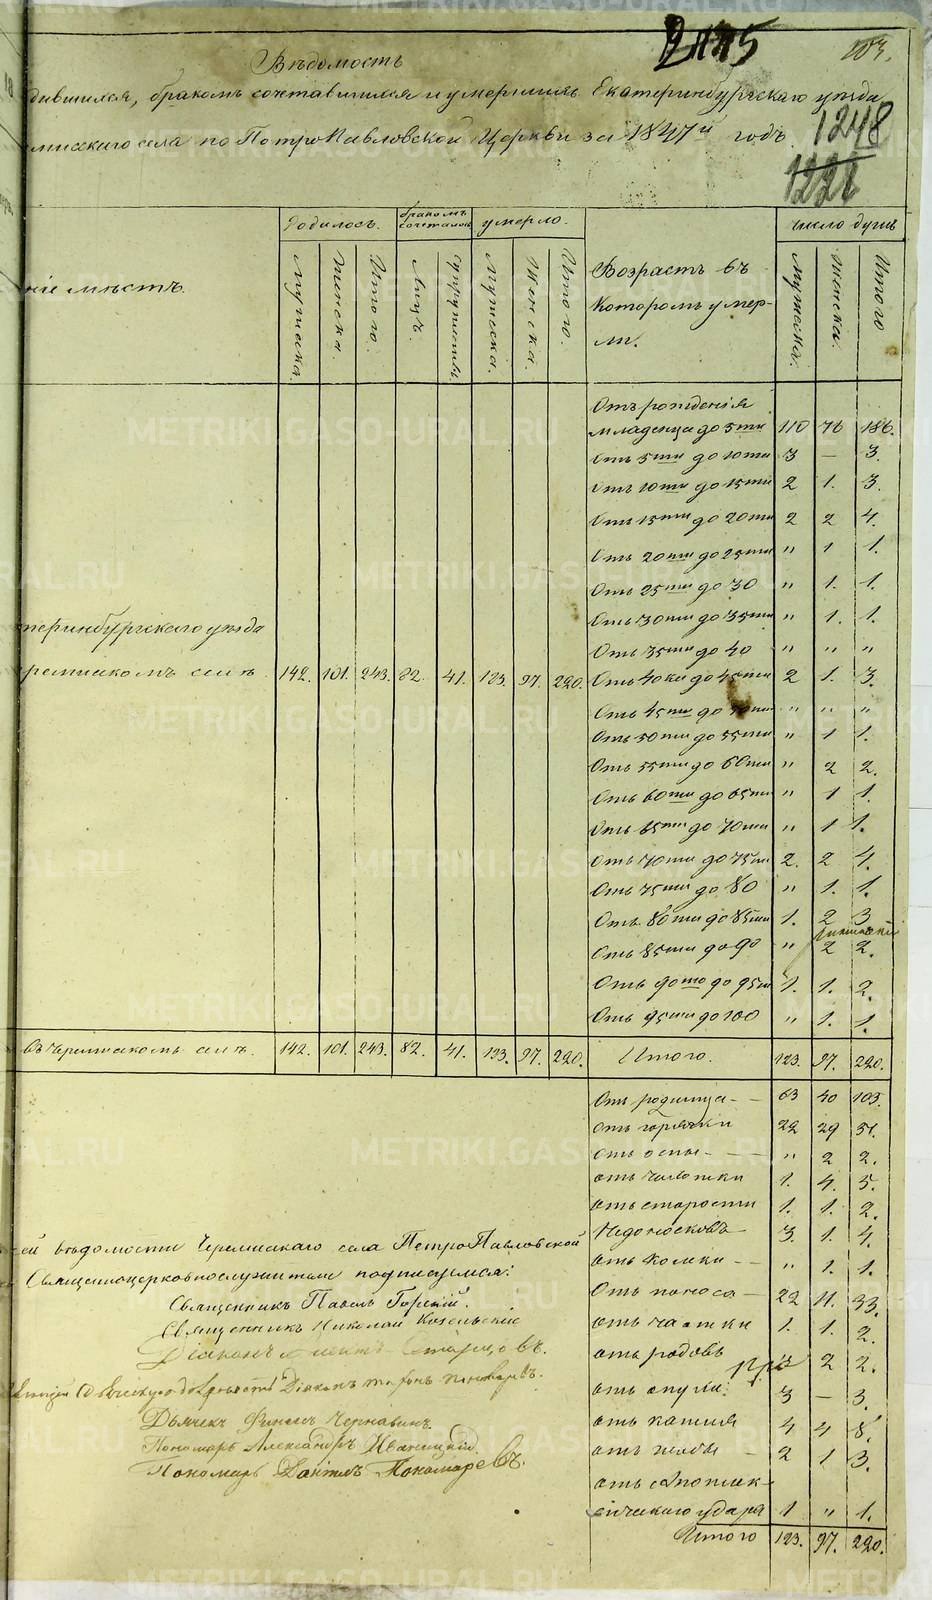 2115
103.
Вѣдомость
дившихся, бракомъ сочетавшихся и умершихъ Екатеринбургскаго уѣзда
мисскаго села по ПетроПавловской Церкви за 1847й годъ.
1248
1228
родилось. бракомъ сочеталось умерло. число душъ
ніе мѣстъ.
Мужеска. Женска. Итого. Лицъ. Супружествъ. Мужеска. Женска. Итого.
Возрастъ въ
Которомъ умер-
ли.
Мужеска. Женска. Итого
Отъ рожденія
младенца до 5ти 110 76 186.
Отъ 5ти до 10ти 3 — 3.
Отъ 10ти до 15ти 2 1. 3.
Отъ 15ти до 20ти 2 2 4.
Отъ 20ти до 25ти " 1 1.
Отъ 25ти до 30 " 1. 1.
теринбургскаго уѣзда
Отъ 30ти до 35ти " 1. 1.
Отъ 35ти до 40 " " "
ремискомъ селѣ 142. 101. 243. 82. 41. 123. 97. 220. Отъ 40ка до 45ти 2 1. 3.
Отъ 45ти до 50ти " " "
Отъ 50ти до 55ти " 1 1.
Отъ 55ти до 60ти " 2 2.
Отъ 60ти до 65ти " 1 1.
Отъ 65ти до 70ти " 1 1.
Отъ 70ти до 75ти 2. 2 4.
Отъ 75ти до 80 " 1. 1.
Отъ 80ти до 85ти 1. 2 3
Отъ 85ти до 90 " 2 2.
Отъ 90то до 95ти 1. 1. 2.
Отъ 95ти до 100 " 1. 1.
въ Черемискомъ селѣ. 142. 101. 243. 82. 41. 123. 97. 220. Итого. 123. 97. 220.
Отъ родимца - — 63 40 103.
Отъ горячки 22 29 51.
Отъ оспы - — — " 2 2.
отъ чахотки 1. 4. 5.
отъ старости 1. 1. 2.
Недоносковъ — 3. 1. 4.
отъ колики - — " 1. 1.
Отъ поноса — 22 11. 33.
отъ чаотки 1. 1. 2.
отъ родовъ " 2 2.
отъ опухи. 3 — 3.
отъ кашля 4 4 8.
отъ жабы — 2 1 3.
отъ апоплек-
сическаго удара 1 " 1.
Итого 123. 97. 220.
сей вѣдомости Черемискаго села ПетроПавловской
Священноцерковнослужители подписуемся:
Священникъ Павелъ Горскій.
Священникъ Николай Козельскій
Діаконъ Старцовъ.
Діаконъ Пономаревъ.
Дьячекъ Чернавинъ.
Пономарь Александръ Иваницкій.
Пономарь Пономаревъ.
METRIKI.GASO-URAL.RU